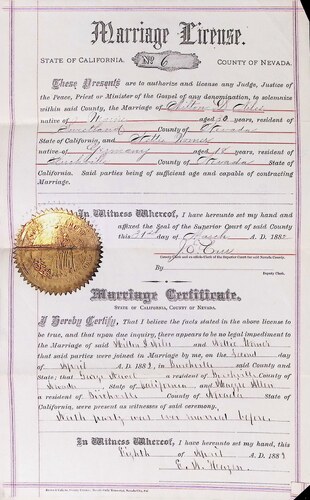 Marriage License.
STATE OF CALIFORNIA. No 6 COUNTY OF NEVADA.
These Presents are to authorize and license any Judge, Justice of
the Peace, Priest or Minister of the Gospel of any denomination, to solemnize
within said County, the Marriage of
native of Maine aged 30 years, resident of
County of Nevada
State of California, and
native of Germany aged 18 years, resident of
Birchville County of Nevada State of
California. Said parties being of sufficient age and capable of contracting
Marriage.
In Witness Whereof, I have hereunto set my hand and
affixed the Seal of the Superior Court of said County
this 31st day of March A. D. 188
County Clerk and ex-officio Clerk of the Superior Court for said Nevada County.
By
Deputy Clerk.
Marriage Certificate.
STATE OF CALIFORNIA, COUNTY OF NEVADA.
I Hereby Certify, That I believe the facts stated in the above license to
be true, and that upon due inquiry, there appears to be no legal impediment
to the Marriage of said and
that said parties were joined in Marriage by me, on the Second day
of April A. D. 188 in Birchville said County and
State; that George a resident of Birchville County of
Nevada State of California and Maggie Allen
a resident of Birchville County of Nevada State of
California, were present as witnesses of said ceremony.
Neither party was ever married before.
In Witness Whereof, I have hereunto set my hand, this
Eighth of April A. D. 188